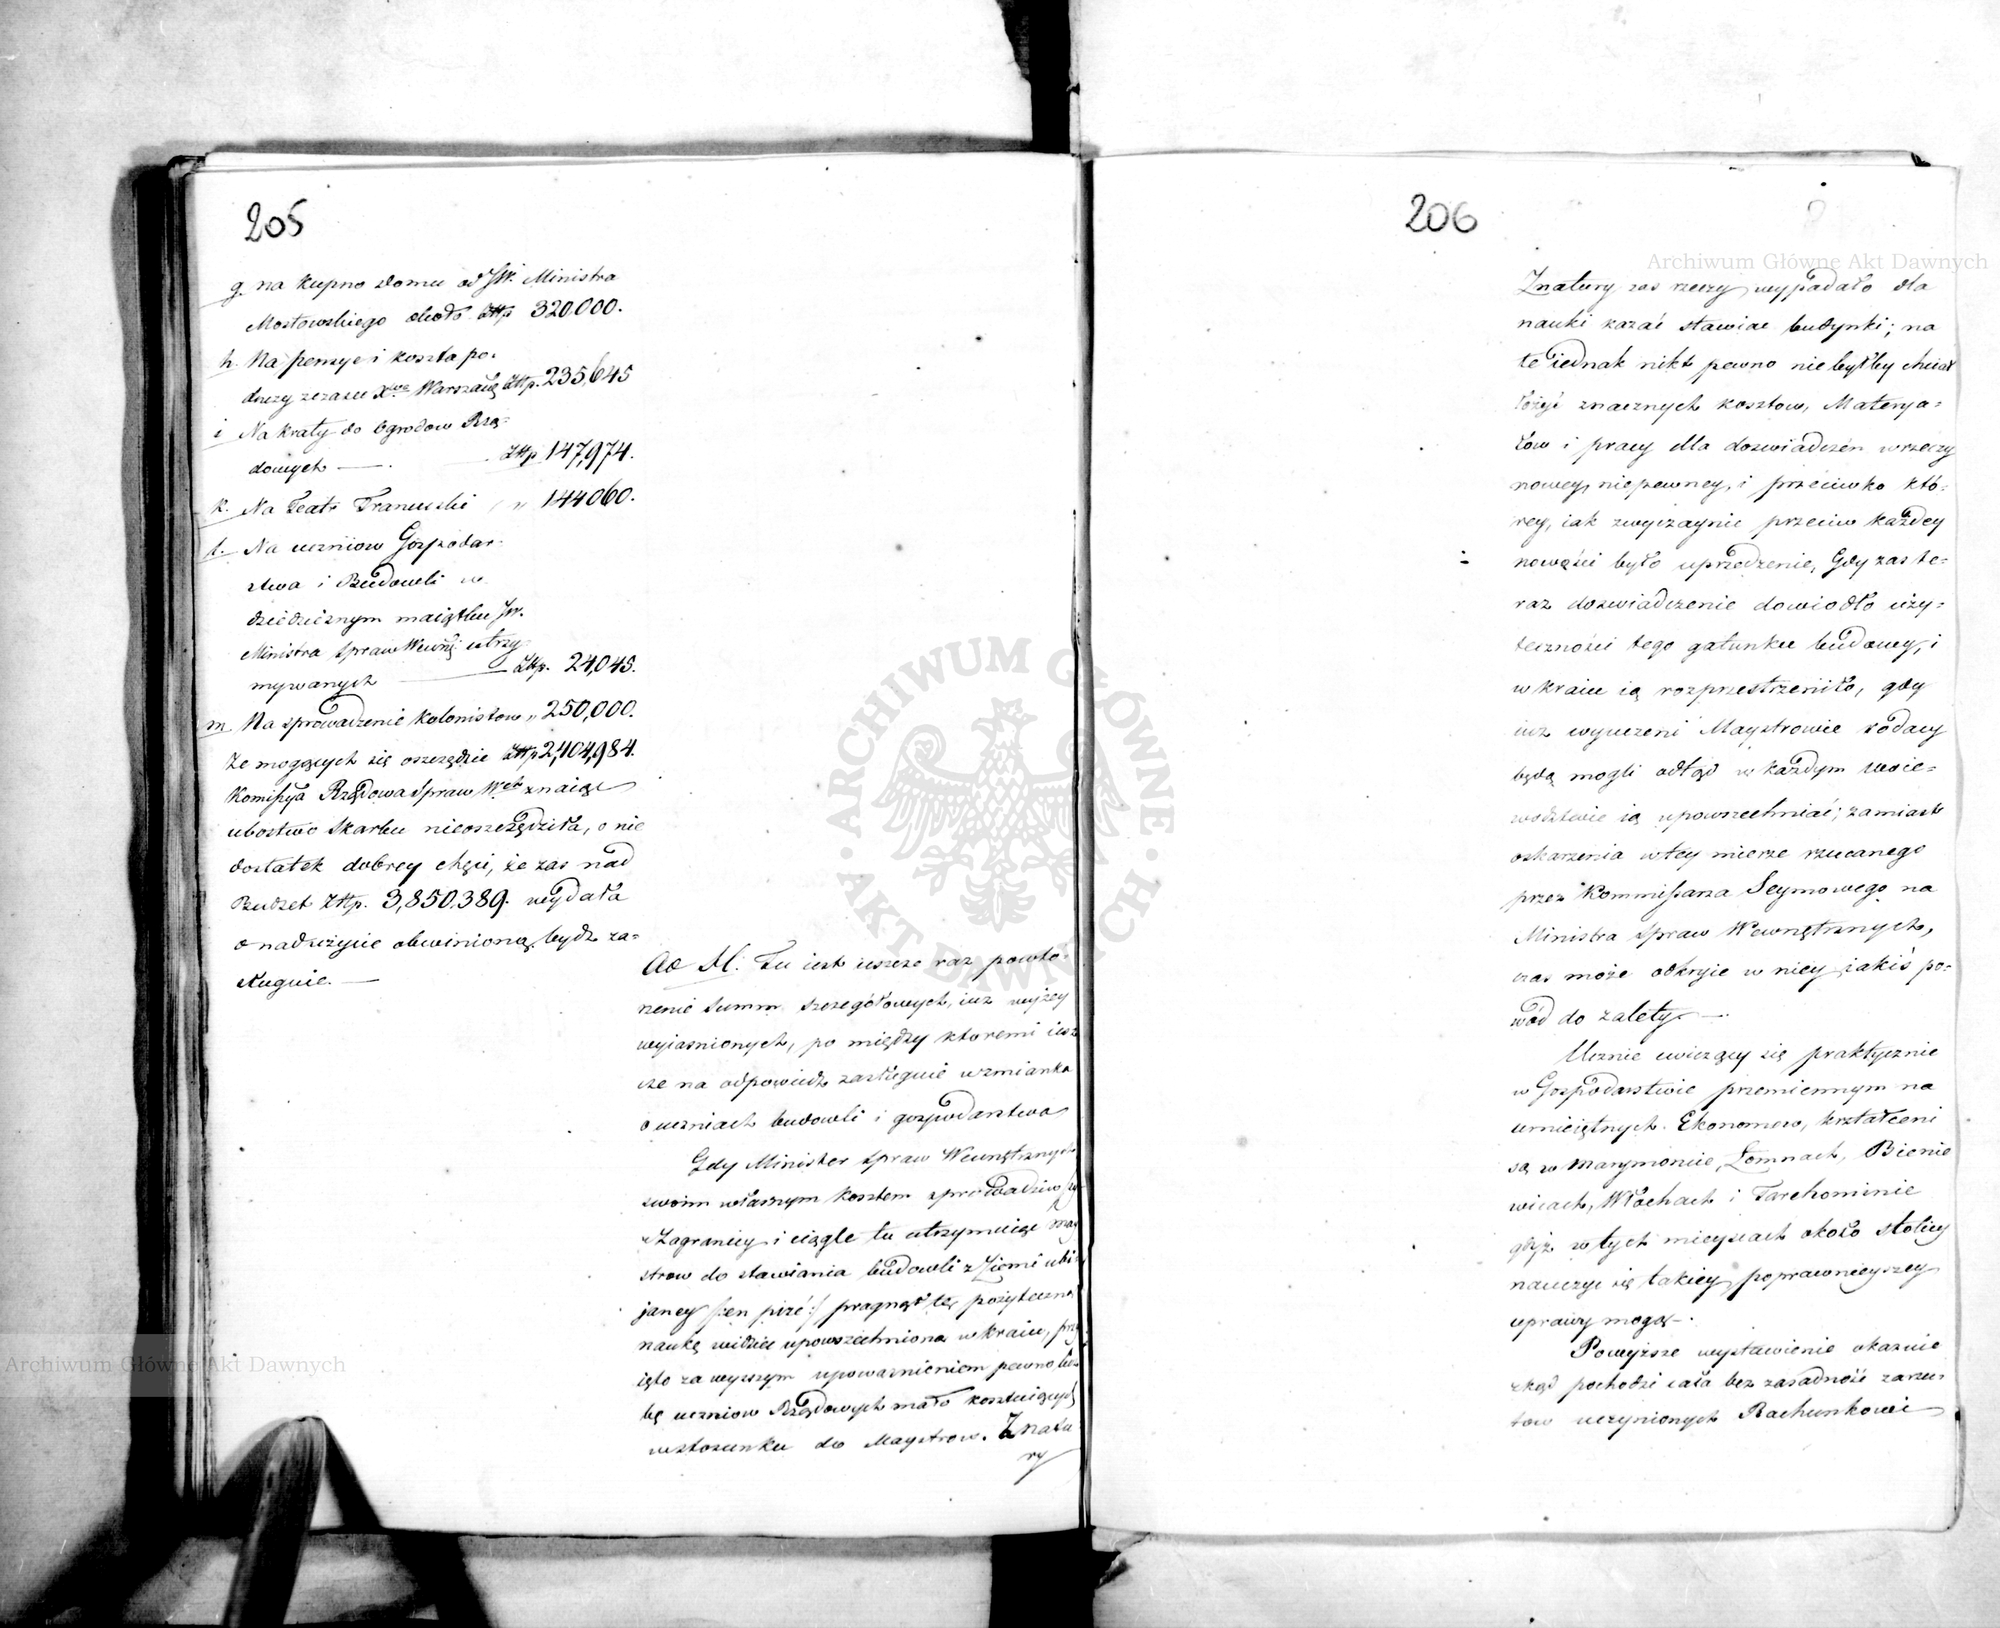 205
g. na kupno domu od JW. Ministra
Mostowskiego około Złłp 320.000.
h. Na pensye i koszta po-
druży zczasu Xtwa Warszaw: Złłp. 235,645
i Na kraty do Ogrodow Rzą-
dowych —. Złłp 147,974.
k. Na Teatr Francuski „ 144060.
l. Na uczniow Gospodar-
stwa i Budowli w
dziedzicznym maiątku JW.
Ministra Spraw Wewnę: utrzy-
mywanych — Złłp. 24,045.
m Na sprowadzenie kolonistow „ 250,000.
Ze mogących się oszczędzić Złłp 2,404,984.
Kommissya Rządowa Spraw Weh znaiąc
ubostwo Skarbu nieoszczędziła, o nie
dostatek dobrey chęci, że zas nad
Budżet Złłp. 3,850.389. wydała
o nadużycie obwinioną bydź za-
sługuie. —
Ad M. Tu iest ieszcze raz powtó-
rzenie Summ Szczegółowych, iuz wyżey
wyiasnionych, po między ktoremi iesz
cze na odpowiedź zasługuie wzmianka
o uczniach budowli i gospodarstwa
Gdy Minister Spraw Wewnętrznych
swoim własnym kosztem sprowadziwszy
z Zagranicy i ciągle tu utrzymuiąc May
strow do stawiania budowli z Ziemi ubi-
janey /:en pisé:/ pragnął tę pożyteczną
naukę widzieć upowszechnioną w kraiu, przy
ięto za wyższym upoważnieniem pewną licz
bę uczniow Rządowych mało kosztuiących
wstosunku do Maystrow. Znatu-
ry
206
Znatury zas rzeczy wypadało dla
nauki kazać stawiać budynki; na
te iednak nikt pewno nie byłby chciał
łożyć znacznych kosztow, Materya-
łow i pracy dla doswiadczeń w rzeczy
nowey, niepewney, i przeciwko któ-
rey, iak zwyczaynie przeciw każdey
nowości było uprzedzenie, Gdy zas te-
raz doswiadczenie dowiodło uży-
teczności tego gatunku budowy, i
w kraiu ią rozprzestrzeniło, gdy
iuż wyuczeni Maystrowie rodacy
będą mogli odtąd w każdym Woie-
wodztwie ią upowszechniać; zamiast
oskarzenia w tey mierze rzucanego
przez Kommissarza Seymowego na
Ministra Spraw Wewnętrznych,
czas może odkryie w niey iakiś po-
wód do zalety. —
Ucznie cwiczący się praktycznie
w Gospodarstwie przemiennym na
umieiętnych Ekonomow, kształceni
są w Marymoncie, Łomnach, Bienie
wicach, Włochach i Tarchominie
gdyż w tych mieyscach około stolicy
nauczyć się takiey poprawnieyszey
uprawy mogą. —
Powyższe wystawienie okazuie
zkąd pochodzi cała bez zasadność zarzu-
tow uczynionych Rachunkowi
Archiwum Główne Akt Dawnych
Archiwum Główne Akt Dawnych
ARCHIWUM GŁÓWNE AKT DAWNYCH